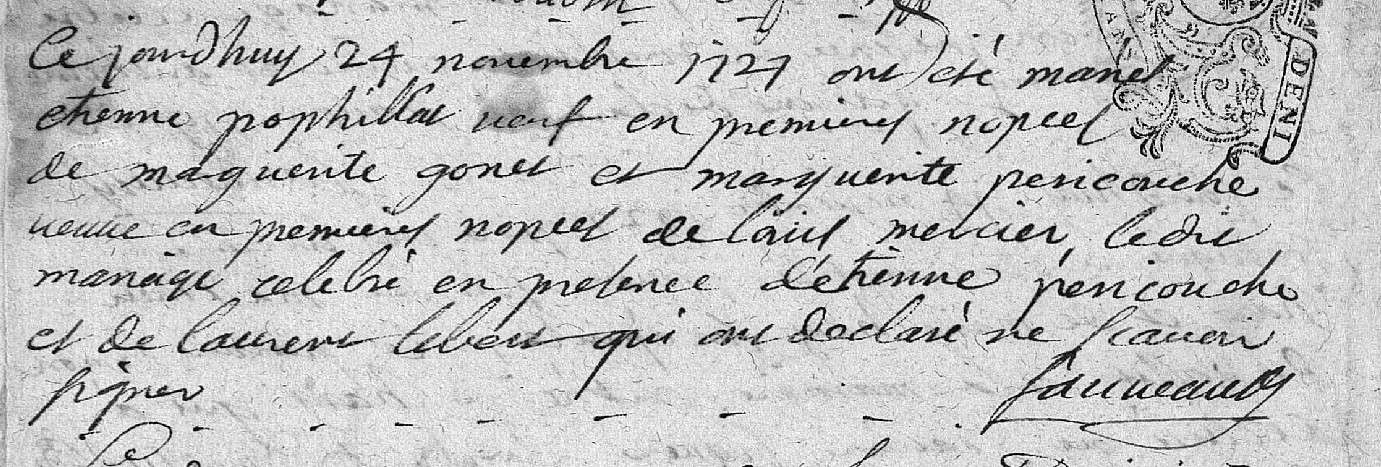 Ce jourdhuy 24 novembre 1727 ont eté mariés
etienne pophillat veuf en premieres nopces
de maguerite gonet et marguerite pericouche
veuve en premieres nopces de louis mercier, ledit
mariage celebré en presence d'etienne pericouche
et de laurent lebert qui ont declaré ne scavoir
signer
DENI
Ce